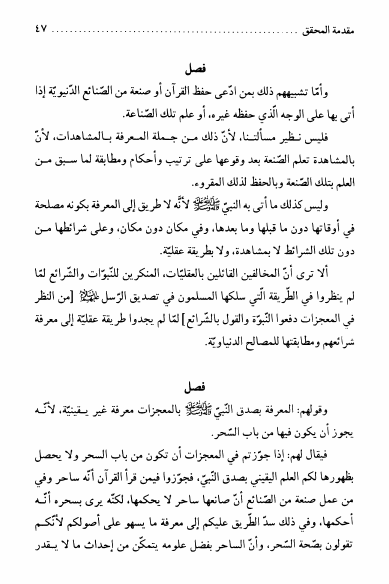 مقدمة المحقق ........................................................ ٤٧
فصل
وأمّا تشبيههم ذلك بمن ادّعى حفظ القرآن أو صنعة من الصّنائع الدّنيويّة إذا
أتى بها على الوجه الّذي حفظه غيره، أو علم تلك الصّناعة.
فليس نظير مسألتنا، لأنّ ذلك من جملة المعرفة بالمشاهدات، لأنّ
بالمشاهدة تعلم الصّنعة بعد وقوعها على ترتيب وأحكام ومطابقة لما سبق من
العلم بتلك الصّنعة وبالحفظ لذلك المقروء.
وليس كذلك ما أتى به النبيّ ﷺ لأنّه لا طريق إلى المعرفة بكونه مصلحة
في أوقاتها دون ما قبلها وما بعدها، وفي مكان دون مكان، وعلى شرائطها من
دون تلك الشرائط لا بمشاهدة، ولا بطريقة عقليّة.
ألا ترى أنّ المخالفين القائلين بالعقليّات، المنكرين للنّبوّات والشّرائع لمّا
لم ينظروا في الطّريقة الّتي سلكها المسلمون في تصديق الرّسل [من النظر
في المعجزات دفعوا النّبوّة والقول بالشّرائع] لمّا لم يجدوا طريقة عقليّة إلى معرفة
شرائعهم ومطابقتها للمصالح الدنياويّة.
فصل
وقولهم: المعرفة بصدق النّبيّ ﷺ بالمعجزات معرفة غير يقينيّة، لأنّه
يجوز أن يكون فيها من باب السّحر.
فيقال لهم: إذا جوّزتم في المعجزات أن تكون من باب السحر ولا يحصل
بظهورها لكم العلم اليقيني بصدق النّبيّ، فجوّزوا فيمن قرأ القرآن أنّه ساحر وفي
من عمل صنعة من الصّنائع أنّ صانعها ساحر لا يحكمها، لكنّه يرى بسحره أنّه
أحكمها، وفي ذلك سدّ الطّريق عليكم إلى معرفة ما يسهو على أصولكم لأنّكم
تقولون بصحّة السّحر، وأنّ الساحر بفضل علومه يتمكّن من إحداث ما لا يقدر